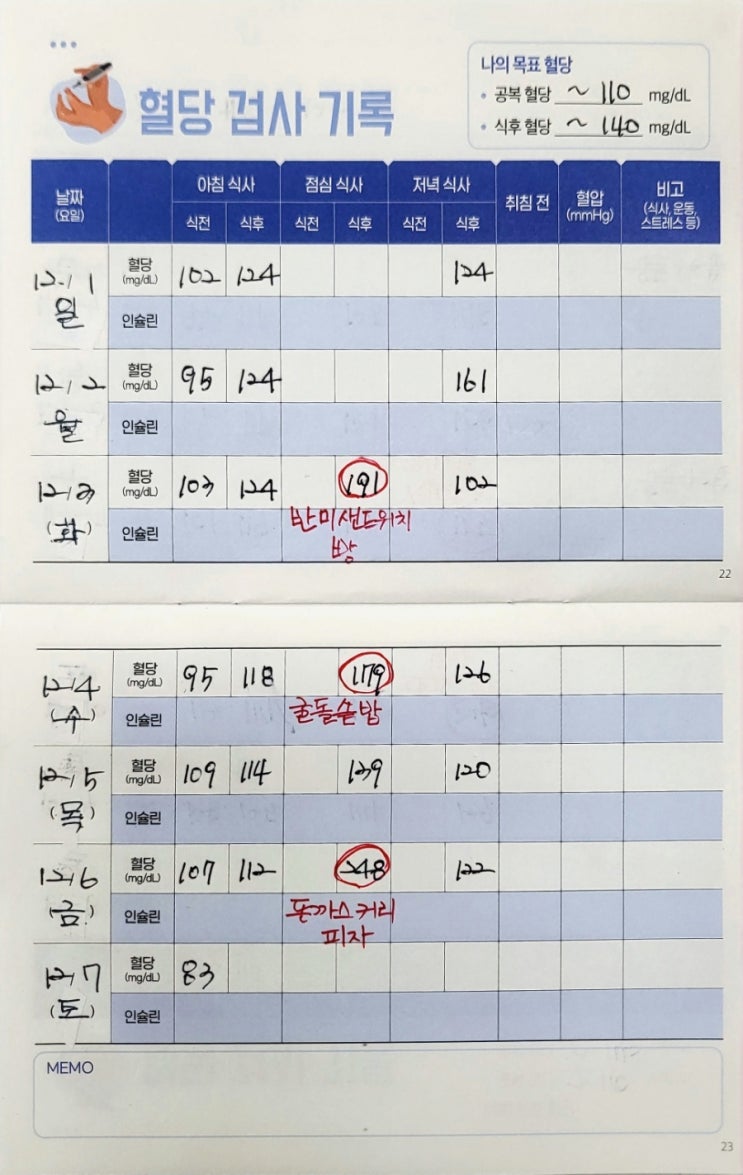 혈당 검사 기록
나의 목표 혈당
• 공복 혈당 ~ 110 mg/dL
• 식후 혈당 ~ 140 mg/dL
날짜 (요일) 아침 식사 점심 식사 저녁 식사 취침 전 혈압 (mmHg) 비고 (식사, 운동, 스트레스 등)
식전 식후 식전 식후 식전 식후
12. / 1 혈당 (mg/dL) 102 124 124
일 인슐린
12. / 2 혈당 (mg/dL) 95 124 161
월 인슐린
12. / 3 혈당 (mg/dL) 103 124 191 102
(화) 인슐린 반미샌드위치
빵
22
12. / 4 혈당 (mg/dL) 95 118 179 126
(수) 인슐린 굴돌솥밥
12. / 5 혈당 (mg/dL) 109 114 139 120
(목) 인슐린
12. / 6 혈당 (mg/dL) 107 112 248 122
(금) 인슐린 돈까스커리
피자
12. / 7 혈당 (mg/dL) 83
(토) 인슐린
MEMO
23